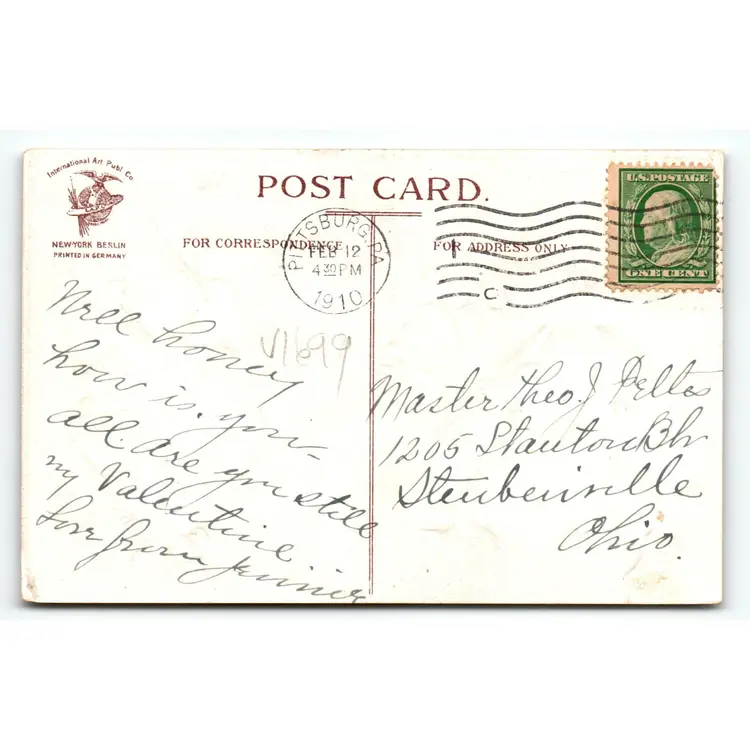 International Art Publ. Co.
NEW-YORK BERLIN
PRINTED IN GERMANY
POST CARD.
FOR CORRESPONDENCE
FOR ADDRESS ONLY
PITTSBURG, PA
FEB 12
4 30 PM
1910
1
C
U.S. POSTAGE
ONE CENT
V1699
Well honey
how is you-
all. are you still
my Valentine
Love from
Master Theo. J
1205 Stanton Blv
Steubenville
Ohio.